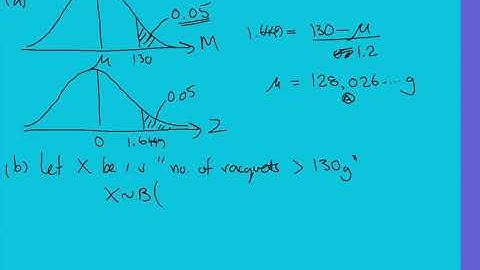 (a)
0.05
M
μ
130
1.6449 = 130-μ / 1.2
μ = 128.026...g
0.05
Z
0
1.6449
(b) Let X be r.v "no. of racquets > 130g"
X~B(